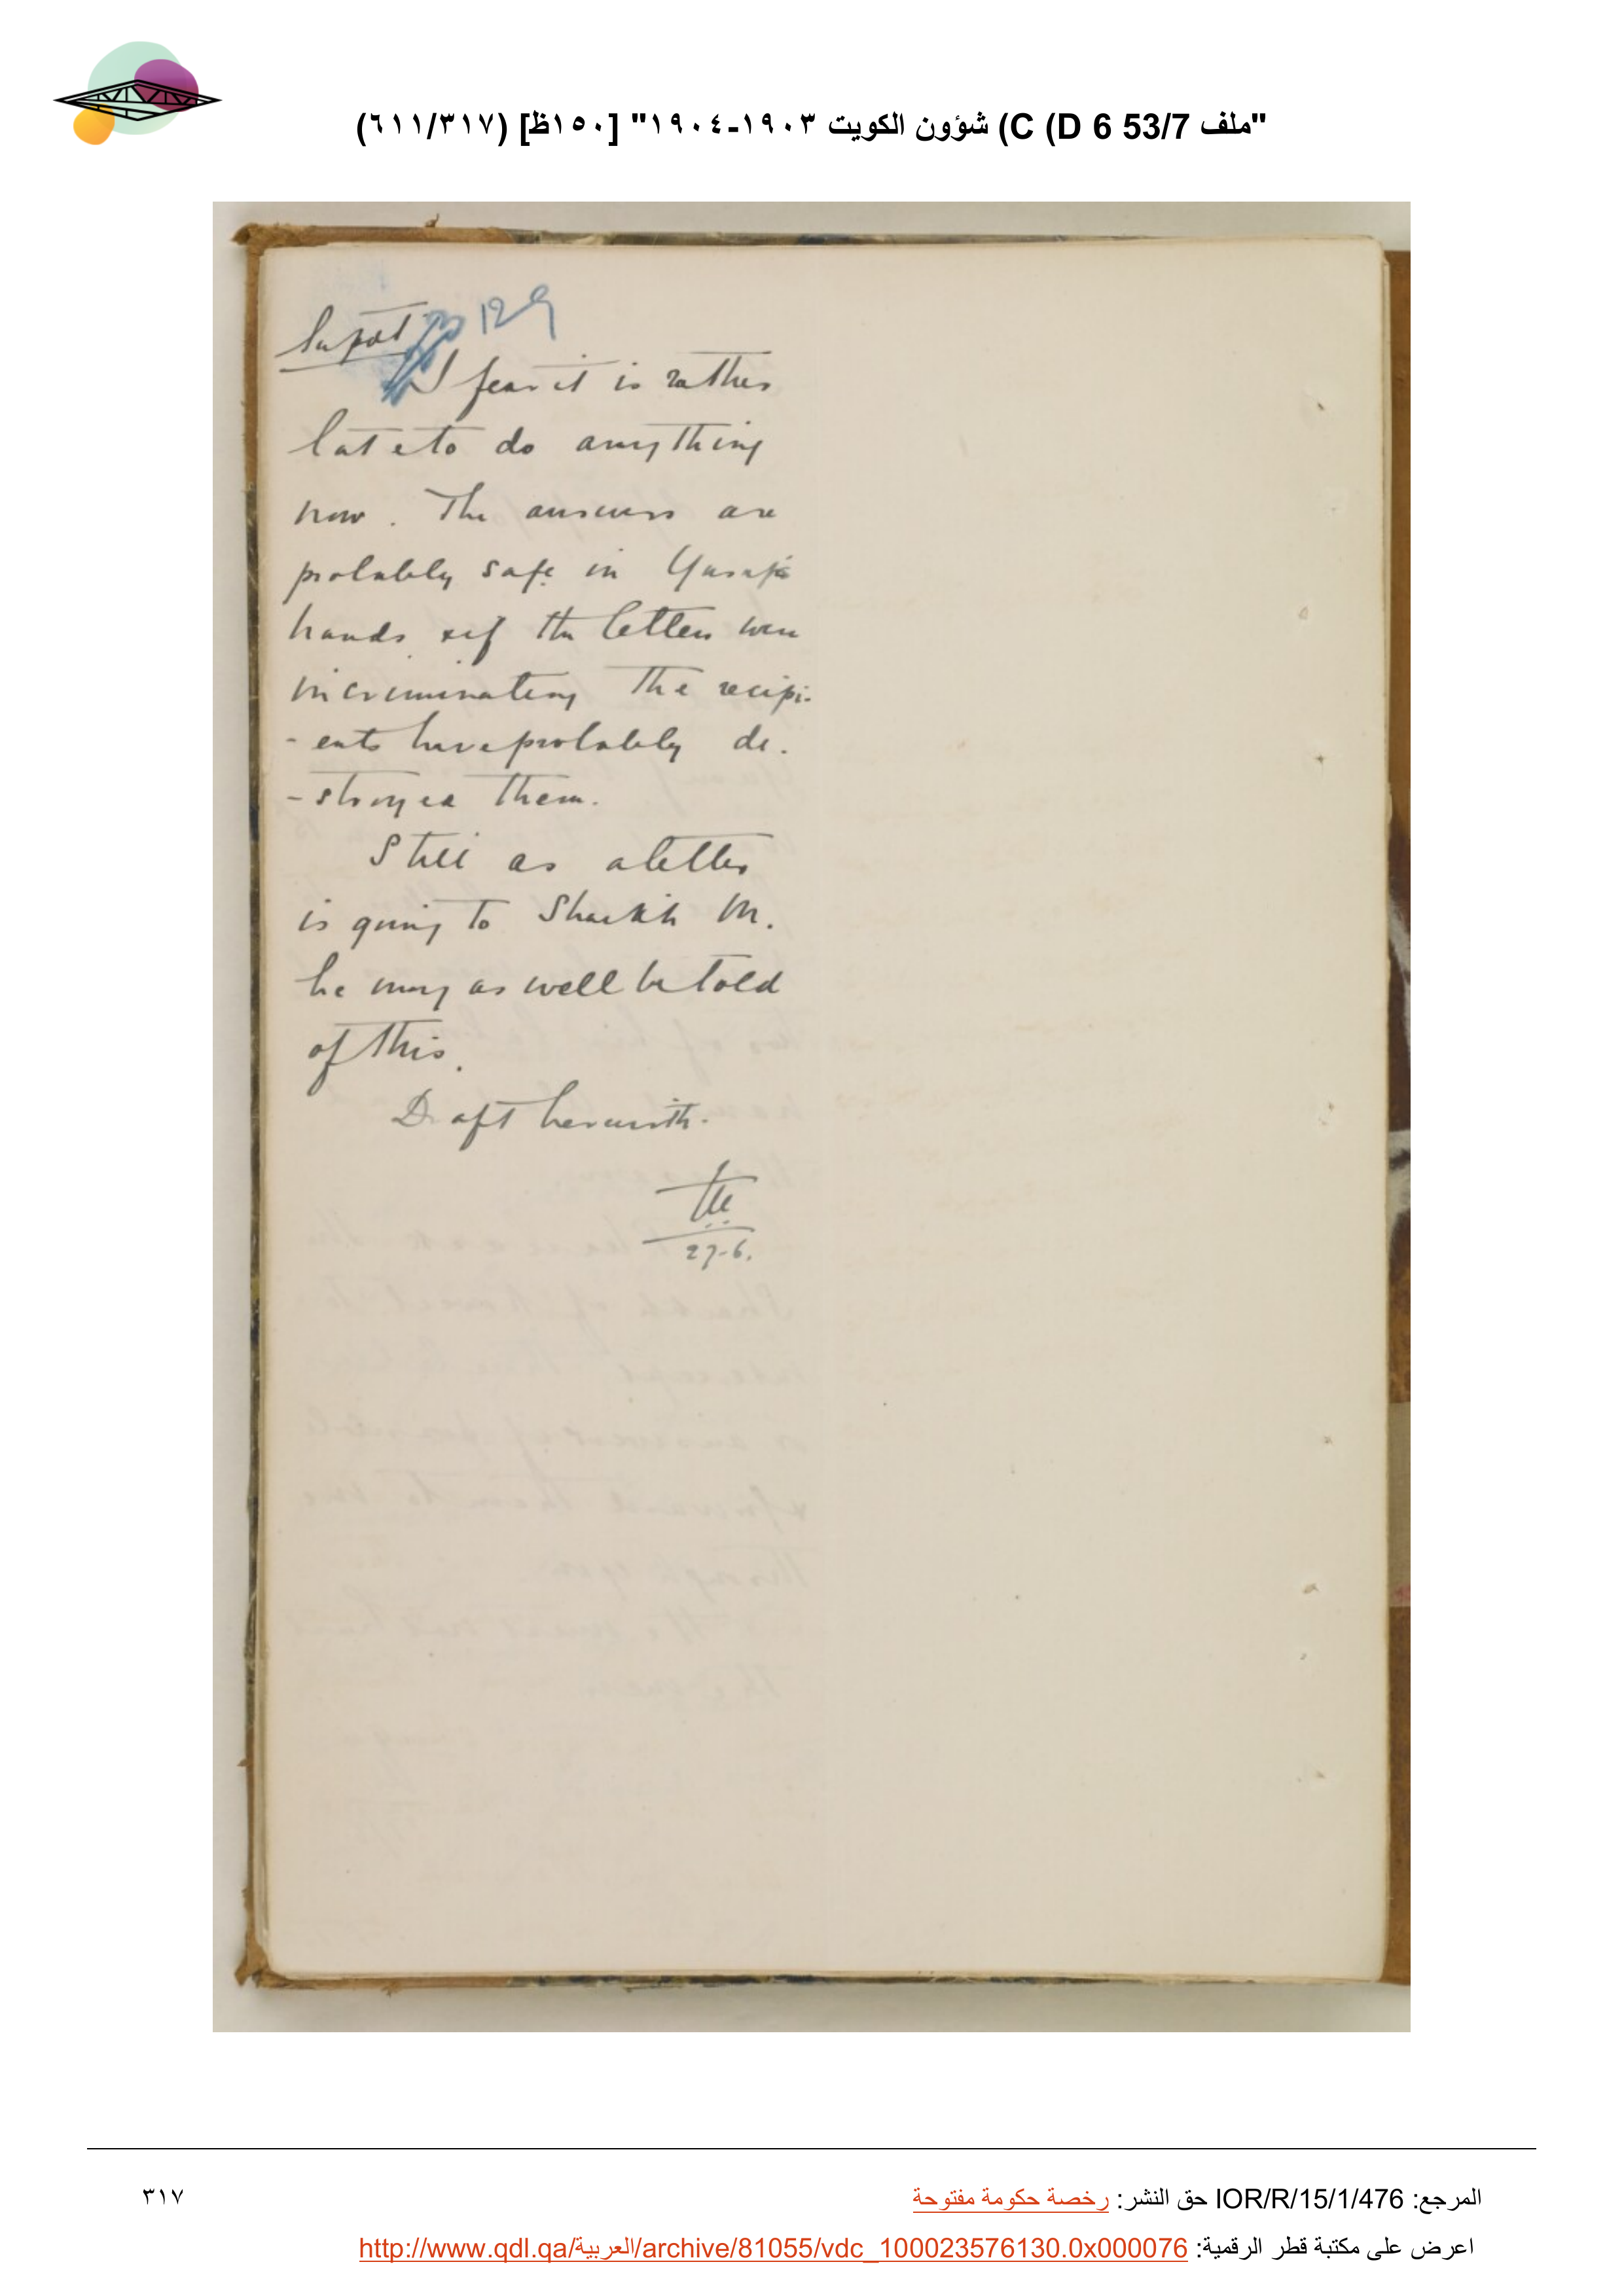 "ملف 53/7 D 6) C) شؤون الكويت ١٩٠٣-١٩٠٤" [١٥٠ظ] (٦١١/٣١٧)
129
I fear it is rather
late to do anything
now. The answers are
probably safe in Yusuf's
hands & if the letters were
incriminating the recipi-
-ents have probably de-
-stroyed them.
Still as a letter
is going to Shaikh M.
he may as well be told
of this.
Draft herewith.
27-6.
المرجع: IOR/R/15/1/476 حق النشر: رخصة حكومة مفتوحة
٣١٧
اعرض على مكتبة قطر الرقمية: http://www.qdl.qa/العربية/archive/81055/vdc_100023576130.0x000076